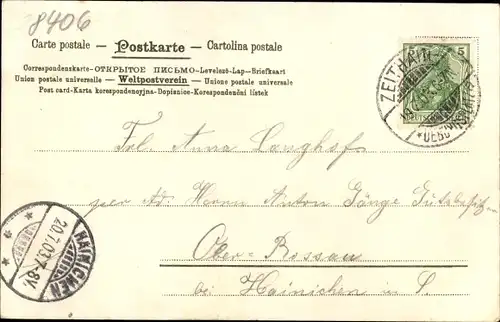 8406
Carte postale — Postkarte — Cartolina postale
Correspondenzkarte-ОТКРЫТОЕ ПИСЬМО-Levelező-Lap-Briefkaart
Union postale universelle — Weltpostverein — Unione postale universale
Post card-Karta korespondencyjna-Dopisnice-Korespondenční lístek
5 5
ZEITHAIN
Frl. Anna Langhof
per Ad. Herrn Anton Gänge Gutsbesitzer
Ober-Rossau
bei Hainichen in S.
HAINICHEN
20.7.03. 7-8V.